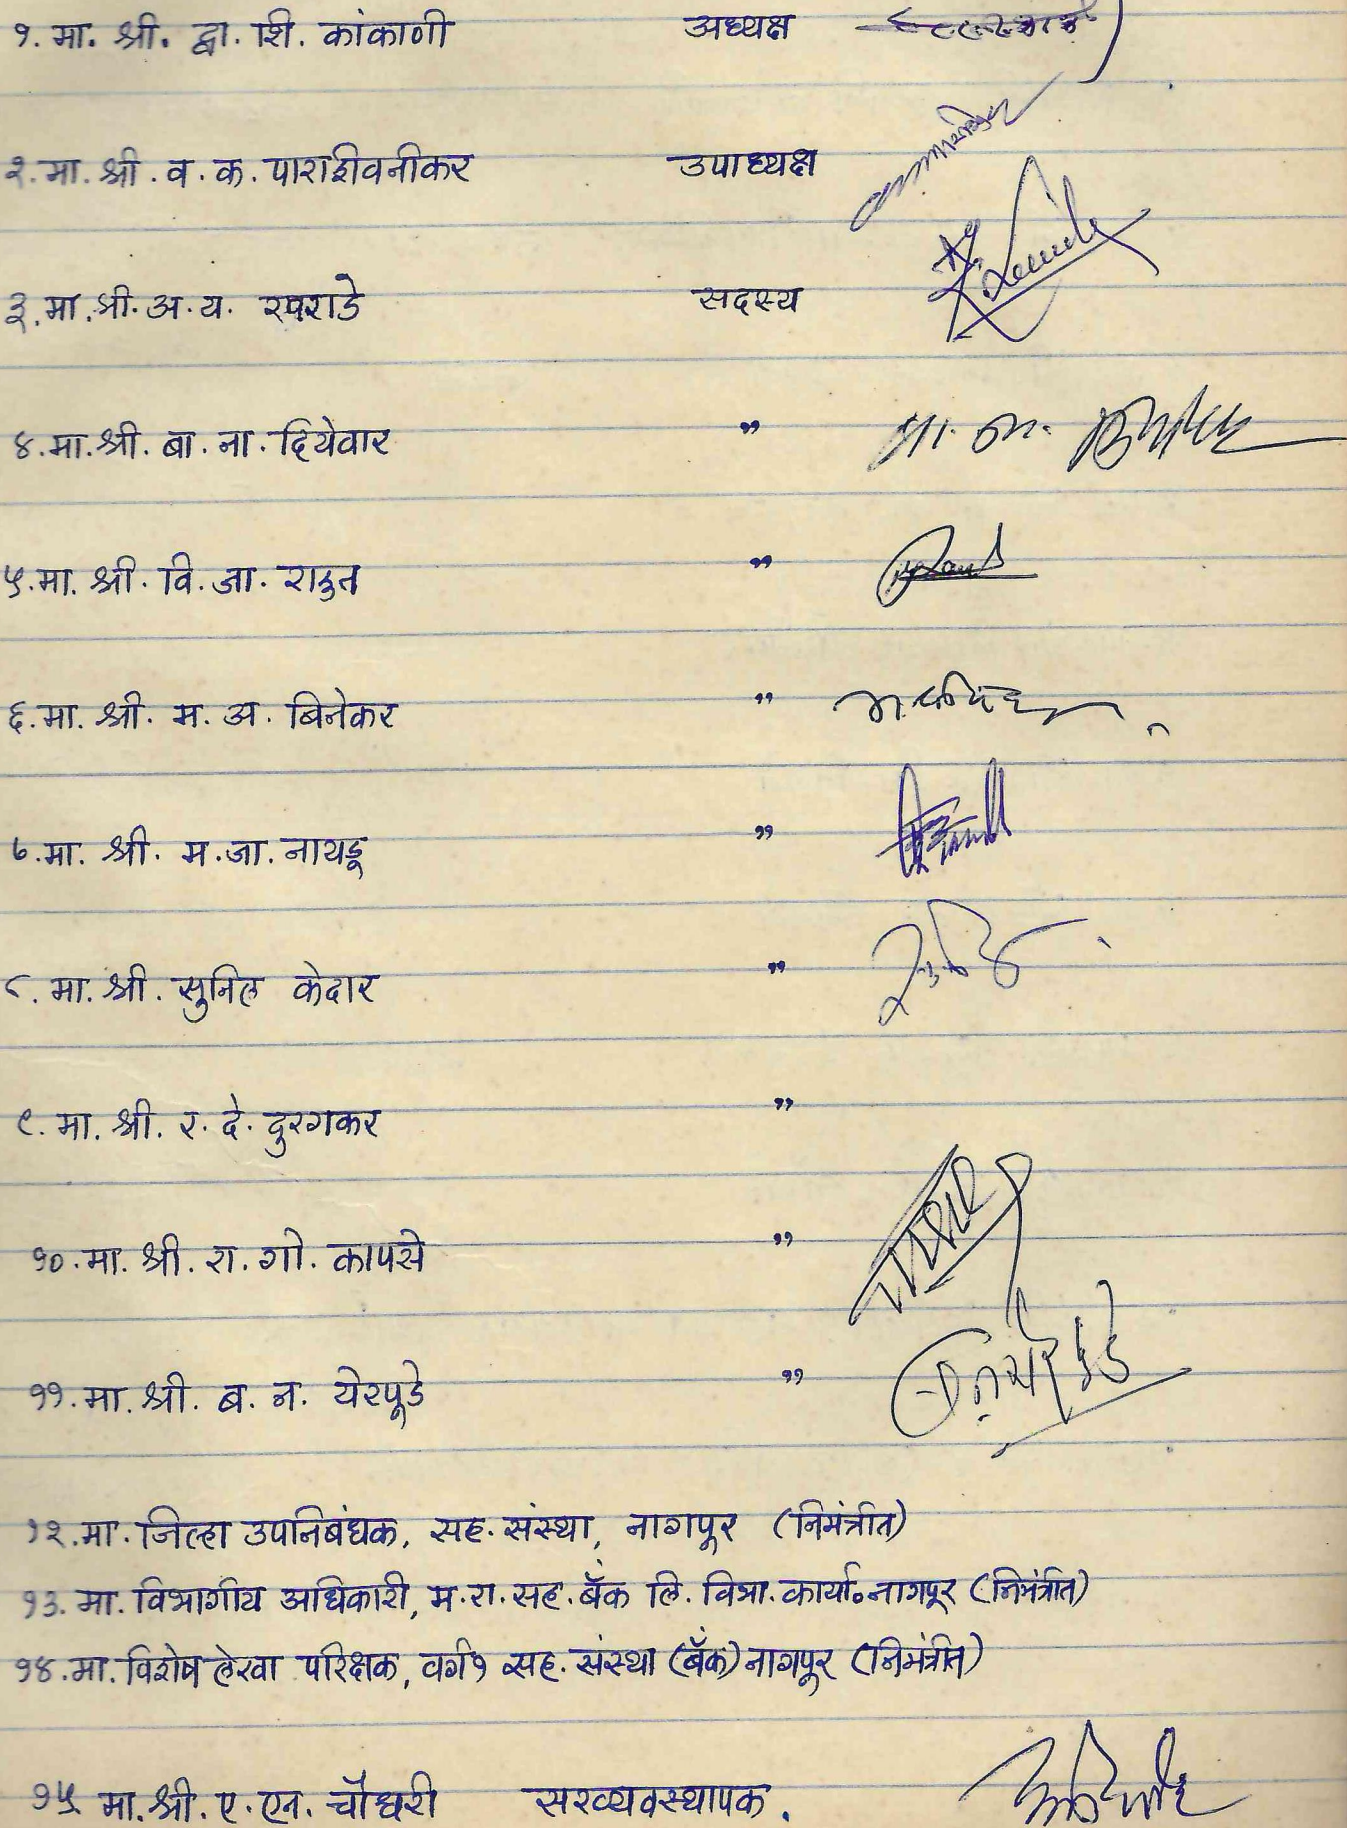 १. मा. श्री. द्वा. शि. कांकाणी अध्यक्ष
२. मा. श्री. व. क. पाराशीवनीकर उपाध्यक्ष
३. मा. श्री. अ. य. खपराडे सदस्य
४. मा. श्री. बा. ना. दियेवार "
५. मा. श्री. वि. जा. राऊत "
६. मा. श्री. म. अ. बिनेकर "
७. मा. श्री. म. जा. नायडू "
८. मा. श्री. सुनिल केदार "
९. मा. श्री. र. दे. दुरगकर "
१०. मा. श्री. रा. गो. कापसे "
११. मा. श्री. ब. न. येरपूडे "
१२. मा. जिल्हा उपनिबंधक, सह. संस्था, नागपूर (निमंत्रीत)
१३. मा. विभागीय अधिकारी, म. रा. सह. बँक लि. विभा. कार्या. नागपूर (निमंत्रीत)
१४. मा. विशेष लेखा परिक्षक, वर्ग १ सह. संस्था (बँक) नागपूर (निमंत्रीत)
१५ मा. श्री. ए. एन. चौधरी सरव्यवस्थापक.